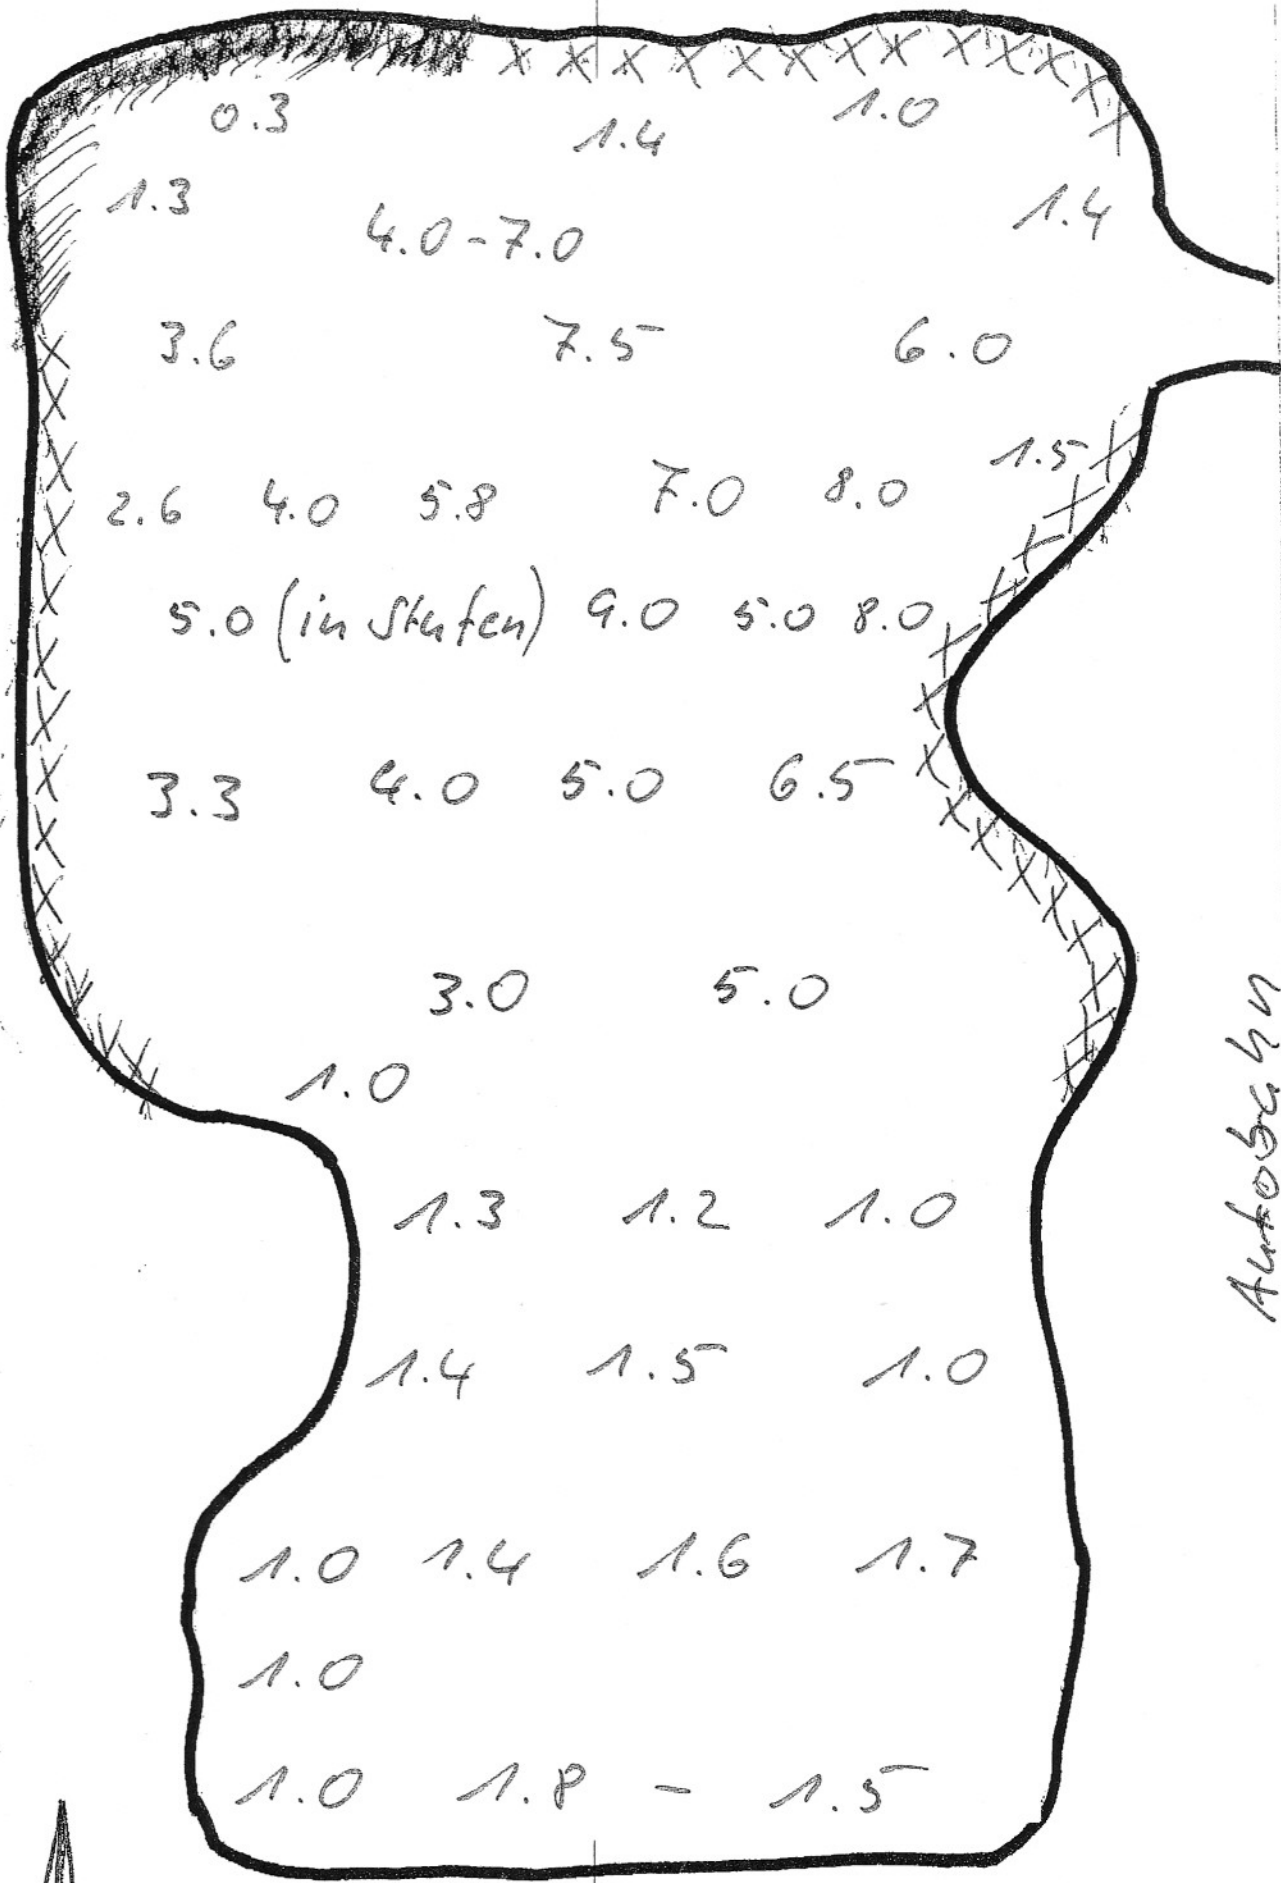 0.3 1.4 1.0
1.3 4.0-7.0 1.4
3.6 7.5 6.0
1.5
2.6 4.0 5.8 7.0 8.0
5.0 (in Stufen) 9.0 5.0 8.0
3.3 4.0 5.0 6.5
3.0 5.0
1.0
1.3 1.2 1.0
1.4 1.5 1.0
1.0 1.4 1.6 1.7
1.0
1.0 1.8 - 1.5
Autobahn